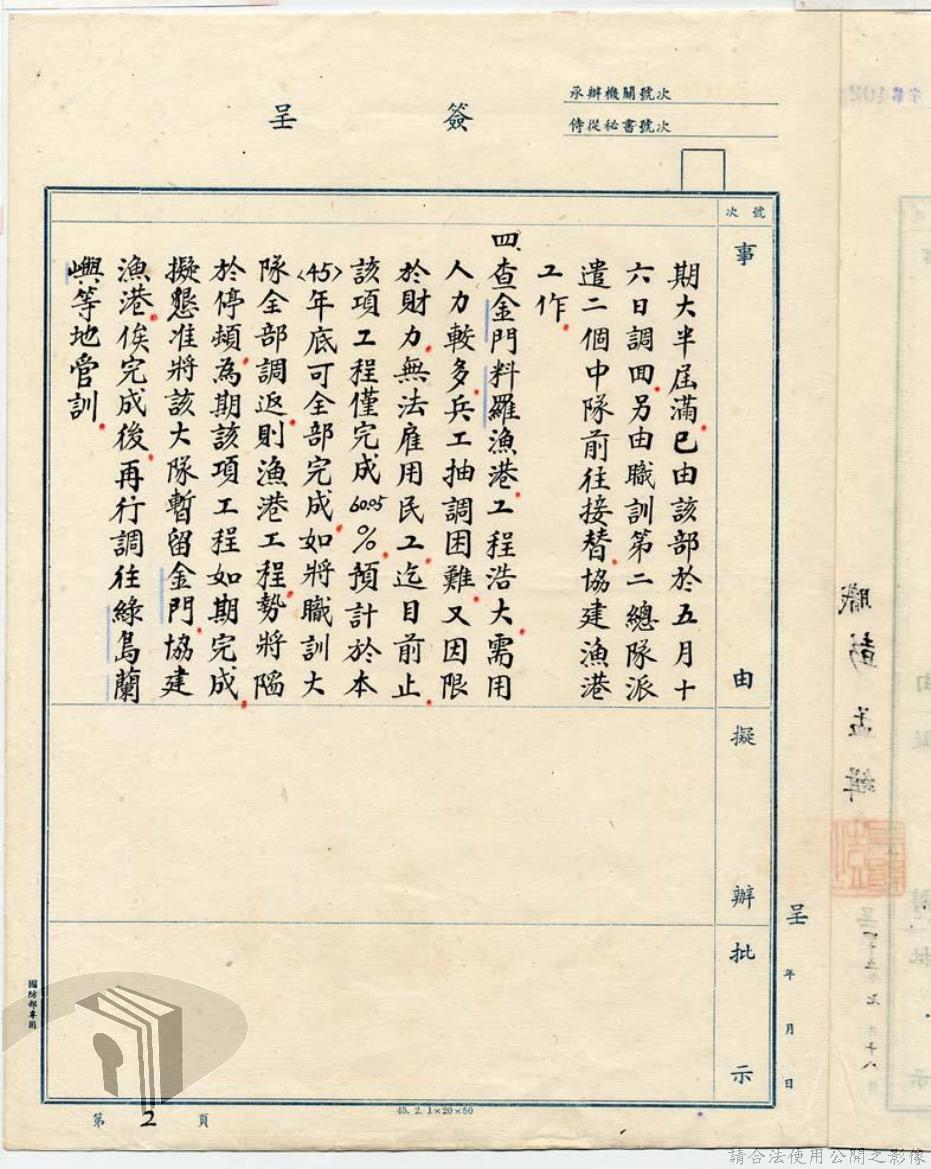 承辦機關號次
侍從秘書號次
簽呈
號次
事由
擬辦
批示
期大半屆滿已由該部於五月十
六日調回另由職訓第二總隊派
遣二個中隊前往接替協建漁港
工作
四、查金門料羅漁港工程浩大需用
人力較多兵工抽調困難又因限
於財力無法雇用民工迄目前止
該項工程僅完成60.05%預計於本
〈45〉年底可全部完成如將職訓大
隊全部調返則漁港工程勢將陷
於停頓為期該項工程如期完成
擬懇准將該大隊暫留金門協建
漁港俟完成後再行調往綠島蘭
嶼等地管訓
呈 年 月 日
國防部專用
第2頁
45. 2. 1×20×50
職彭孟緝
請合法使用公開之影像